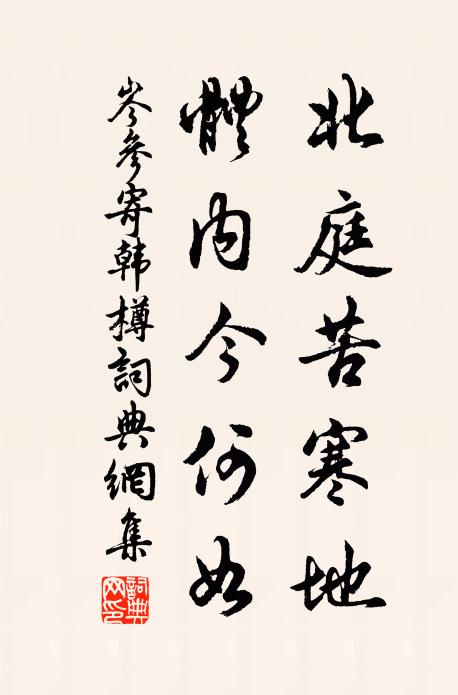 北庭苦寒地
體内今何如
岑參寄韩樽詞典網集
詞典网印